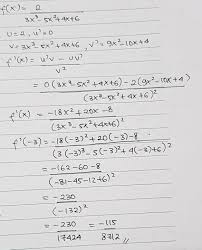 f(x) = 2
3x³-5x²+4x+6
u=2, u'=0
v=3x³-5x²+4x+6, v'=9x²-10x+4
f'(x) = u'v - uv'
v²
= 0(3x³-5x²+4x+6) - 2(9x²-10x+4)
(3x³-5x²+4x+6)²
f'(x) = -18x²+20x-8
(3x³-5x²+4x+6)²
f'(-3) = -18(-3)²+20(-3)-8
(3(-3)³-5(-3)²+4(-3)+6)²
= -162-60-8
(-81-45-12+6)²
= -230
(-132)²
= -230 = -115
17424 8712 //